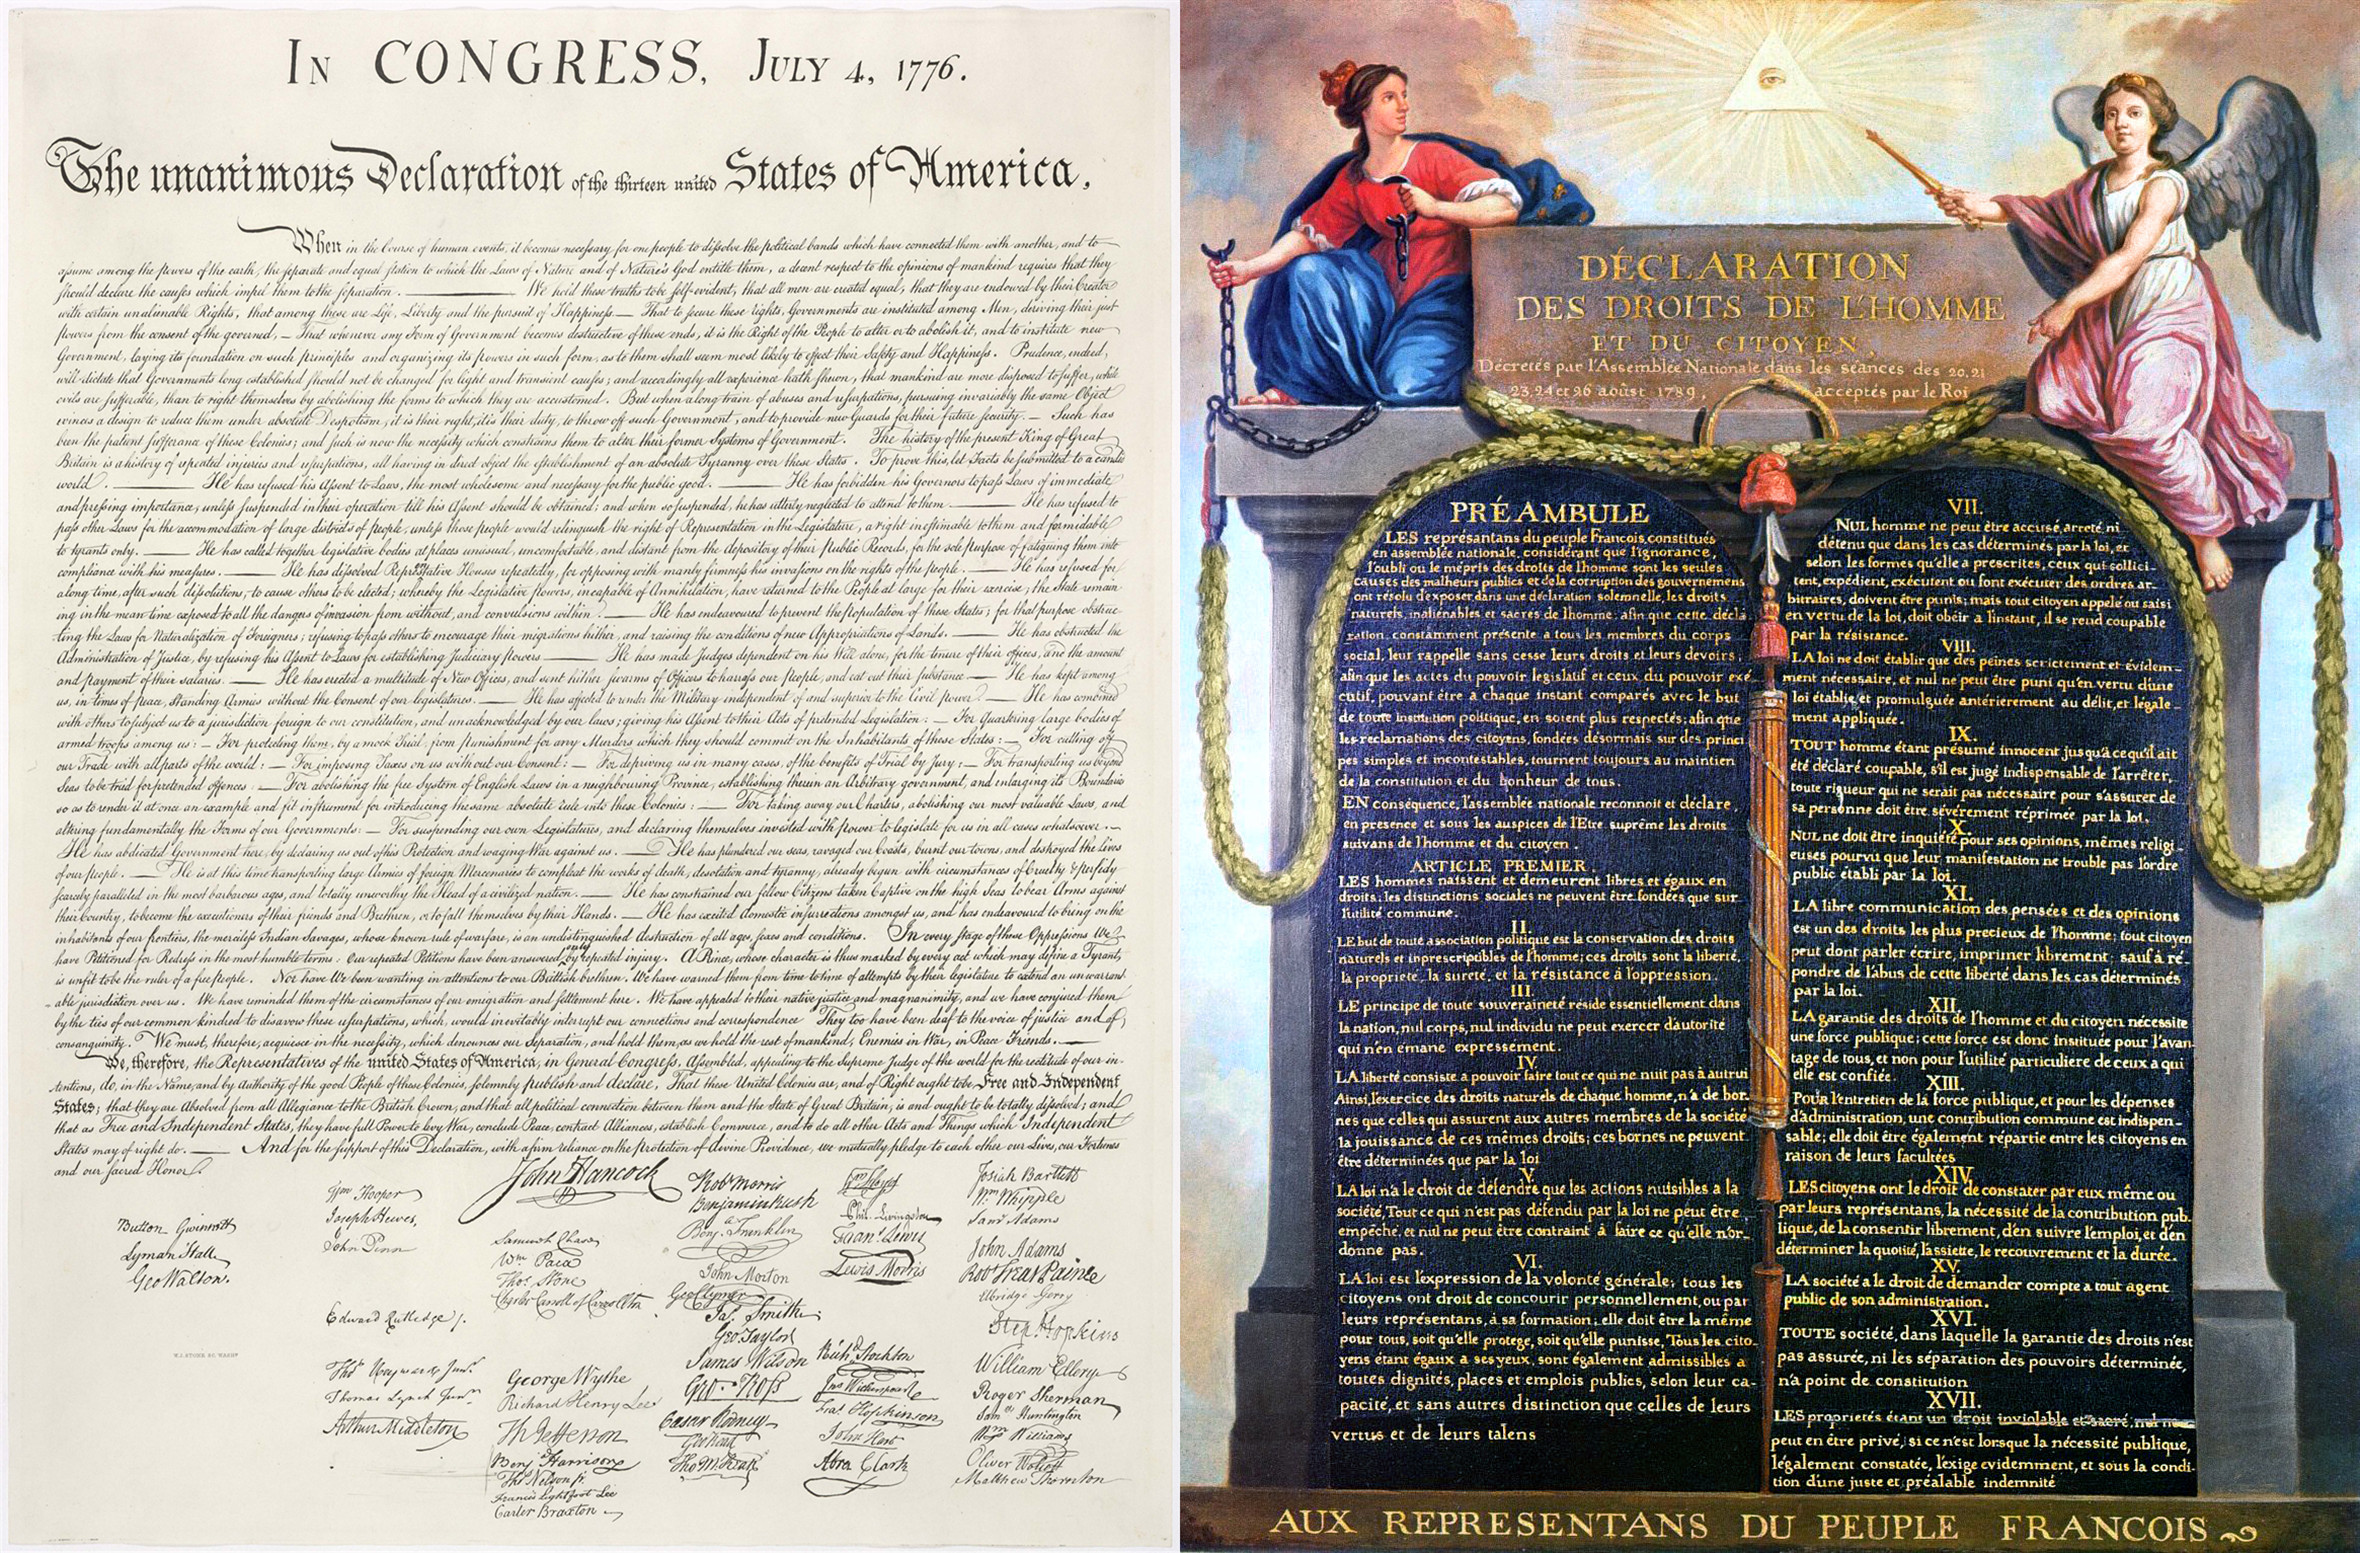 IN CONGRESS, JULY 4, 1776.
The unanimous Declaration of the thirteen united States of America,
When in the Course of human events, it becomes necessary for one people to dissolve the political bands which have connected them with another, and to
assume among the powers of the earth, the separate and equal station to which the Laws of Nature and of Nature's God entitle them, a decent respect to the opinions of mankind requires that they
should declare the causes which impel them to the separation. — We hold these truths to be self-evident, that all men are created equal, that they are endowed by their Creator
with certain unalienable Rights, that among these are Life, Liberty and the pursuit of Happiness — That to secure these rights, Governments are instituted among Men, deriving their just
powers from the consent of the governed, — That whenever any Form of Government becomes destructive of these ends, it is the Right of the People to alter or to abolish it, and to institute new
Government, laying its foundation on such principles and organizing its powers in such form, as to them shall seem most likely to effect their Safety and Happiness. Prudence, indeed,
will dictate that Governments long established should not be changed for light and transient causes; and accordingly all experience hath shewn, that mankind are more disposed to suffer, while
evils are sufferable, than to right themselves by abolishing the forms to which they are accustomed. But when a long train of abuses and usurpations, pursuing invariably the same Object
evinces a design to reduce them under absolute Despotism, it is their right, it is their duty, to throw off such Government, and to provide new Guards for their future security. — Such has
been the patient sufferance of these Colonies; and such is now the necessity which constrains them to alter their former Systems of Government. The history of the present King of Great
Britain is a history of repeated injuries and usurpations, all having in direct object the establishment of an absolute Tyranny over these States. To prove this, let Facts be submitted to a candid
world. — He has refused his Assent to Laws, the most wholesome and necessary for the public good. — He has forbidden his Governors to pass Laws of immediate
and pressing importance, unless suspended in their operation till his Assent should be obtained; and when so suspended, he has utterly neglected to attend to them. — He has refused to
pass other Laws for the accommodation of large districts of people, unless those people would relinquish the right of Representation in the Legislature, a right inestimable to them and formidable
to tyrants only. — He has called together legislative bodies at places unusual, uncomfortable, and distant from the depository of their Public Records, for the sole purpose of fatiguing them into
compliance with his measures. — He has dissolved Representative Houses repeatedly, for opposing with manly firmness his invasions on the rights of the people. — He has refused for
a long time, after such dissolutions, to cause others to be elected; whereby the Legislative powers, incapable of Annihilation, have returned to the People at large for their exercise; the State remain-
ing in the mean time exposed to all the dangers of invasion from without, and convulsions within. — He has endeavoured to prevent the population of these States; for that purpose obstruc-
ting the Laws for Naturalization of Foreigners; refusing to pass others to encourage their migrations hither, and raising the conditions of new Appropriations of Lands. — He has obstructed the
Administration of Justice, by refusing his Assent to Laws for establishing Judiciary powers — He has made Judges dependent on his Will alone, for the tenure of their offices, and the amount
and payment of their salaries. — He has erected a multitude of New Offices, and sent hither swarms of Officers to harrass our people, and eat out their substance — He has kept among
us, in times of peace, Standing Armies without the Consent of our legislatures. — He has affected to render the Military independent of and superior to the Civil power. — He has combined
with others to subject us to a jurisdiction foreign to our constitution, and unacknowledged by our laws; giving his Assent to their Acts of pretended Legislation: — For Quartering large bodies of
armed troops among us: — For protecting them, by a mock Trial, from punishment for any Murders which they should commit on the Inhabitants of these States: — For cutting off
our Trade with all parts of the world: — For imposing Taxes on us without our Consent: — For depriving us in many cases, of the benefits of Trial by Jury: — For transporting us beyond
Seas to be tried for pretended offences — For abolishing the free System of English Laws in a neighbouring Province, establishing therein an Arbitrary government, and enlarging its Boundaries
so as to render it at once an example and fit instrument for introducing the same absolute rule into these Colonies: — For taking away our Charters, abolishing our most valuable Laws, and
altering fundamentally the Forms of our Governments: — For suspending our own Legislatures, and declaring themselves invested with power to legislate for us in all cases whatsoever. —
He has abdicated Government here, by declaring us out of his Protection and waging War against us. — He has plundered our seas, ravaged our Coasts, burnt our towns, and destroyed the lives
of our people. — He is at this time transporting large Armies of foreign Mercenaries to compleat the works of death, desolation and tyranny, already begun with circumstances of Cruelty & perfidy
scarcely paralleled in the most barbarous ages, and totally unworthy the Head of a civilized nation. — He has constrained our fellow Citizens taken Captive on the high Seas to bear Arms against
their Country, to become the executioners of their friends and Brethren, or to fall themselves by their Hands. — He has excited domestic insurrections amongst us, and has endeavoured to bring on the
inhabitants of our frontiers, the merciless Indian Savages, whose known rule of warfare, is an undistinguished destruction of all ages, sexes and conditions. In every stage of these Oppressions We
have Petitioned for Redress in the most humble terms: Our repeated Petitions have been answered only by repeated injury. A Prince, whose character is thus marked by every act which may define a Tyrant,
is unfit to be the ruler of a free people. Nor have We been wanting in attentions to our Brittish brethren. We have warned them from time to time of attempts by their legislature to extend an unwarrant-
able jurisdiction over us. We have reminded them of the circumstances of our emigration and settlement here. We have appealed to their native justice and magnanimity, and we have conjured them
by the ties of our common kindred to disavow these usurpations, which, would inevitably interrupt our connections and correspondence They too have been deaf to the voice of justice and of
consanguinity. We must, therefore, acquiesce in the necessity, which denounces our Separation, and hold them, as we hold the rest of mankind, Enemies in War, in Peace Friends. —
We, therefore, the Representatives of the united States of America, in General Congress, Assembled, appealing to the Supreme Judge of the world for the rectitude of our in-
tentions, do, in the Name, and by Authority of the good People of these Colonies, solemnly publish and declare, That these United Colonies are, and of Right ought to be Free and Independent
States; that they are Absolved from all Allegiance to the British Crown, and that all political connection between them and the State of Great Britain, is and ought to be totally dissolved; and
that as Free and Independent States, they have full Power to levy War, conclude Peace, contract Alliances, establish Commerce, and to do all other Acts and Things which Independent
States may of right do. — And for the support of this Declaration, with a firm reliance on the protection of divine Providence, we mutually pledge to each other our Lives, our Fortunes
and our sacred Honor.
Button Gwinnett
Lyman Hall
Geo Walton.
Wm Hooper
Joseph Hewes,
John Penn
Edward Rutledge /.
Thos Heyward Junr.
Thomas Lynch Junr.
Arthur Middleton
John Hancock
Samuel Chase
Wm. Paca
Thos. Stone
Charles Carroll of Carrollton
George Wythe
Richard Henry Lee
Th Jefferson
Benj Harrison
Thos Nelson jr.
Francis Lightfoot Lee
Carter Braxton
Robt Morris
Benjamin Rush
Benj. Franklin
John Morton
Geo Clymer
Jas. Smith
Geo. Taylor
James Wilson
Geo. Ross
Caesar Rodney
Geo Read
Tho M:Kean
Wm Floyd
Phil. Livingston
Frans. Lewis
Lewis Morris
Richd. Stockton
Jno Witherspoon
Fras. Hopkinson
John Hart
Abra Clark
Josiah Bartlett
Wm Whipple
Saml Adams
John Adams
Robt Treat Paine
Elbridge Gerry
Step. Hopkins
William Ellery
Roger Sherman
Saml Huntington
Wm Williams
Oliver Wolcott
Matthew Thornton
W. J. STONE SC. WASHN
DÉCLARATION
DES DROITS DE L'HOMME
ET DU CITOYEN,
Décretés par l'Assemblée Nationale dans les séances des 20, 21
23, 24 et 26 août 1789, acceptés par le Roi
PRÉAMBULE
LES représantans du peuple Francois, constitués
en assemblée nationale, considérant que l'ignorance,
l'oubli ou le mépris des droits de l'homme sont les seules
causes des malheurs publics et de la corruption des gouvernemens
ont résolu d'exposer dans une déclaration solemnelle, les droits
naturels, inaliénables et sacrés de l'homme: afin que cette décla
ration, constamment présente a tous les membres du corps
social, leur rappelle sans cesse leurs droits et leurs devoirs;
afin que les actes du pouvoir legislatif et ceux du pouvoir exé
cutif, pouvant être a chaque instant comparés avec le but
de toute institution politique, en soient plus respectés; afin que
les reclamations des citoyens, fondées désormais sur des princi
pes simples et incontestables, tournent toujours au maintien
de la constitution et du bonheur de tous.
EN conséquence, l'assemblée nationale reconnoit et déclare,
en presence et sous les auspices de l'Etre suprême les droits
suivans de l'homme et du citoyen.
ARTICLE PREMIER.
LES hommes naissent et demeurent libres et égaux en
droits; les distinctions sociales ne peuvent être fondées que sur
l'utilité commune.
II.
LE but de toute association politique est la conservation des droits
naturels et inprescriptibles de l'homme; ces droits sont la liberté,
la propriete, la sureté, et la résistance à l'oppression.
III.
LE principe de toute souveraineté réside essentiellement dans
la nation, nul corps, nul individu ne peut exercer d'autorité
qui n'en émane expressement.
IV.
LA liberté consiste a pouvoir faire tout ce qui ne nuit pas à autrui
Ainsi, l'exercice des droits naturels de chaque homme, n'a de bor-
nes que celles qui assurent aux autres membres de la société
la jouissance de ces mêmes droits; ces bornes ne peuvent
être déterminées que par la loi
V.
LA loi n'a le droit de défendre que les actions nuisibles a la
société, Tout ce qui n'est pas défendu par la loi ne peut être
empêché, et nul ne peut être contraint à faire ce qu'elle n'or-
donne pas.
VI.
LA loi est l'expression de la volonté générale; tous les
citoyens ont droit de concourir personnellement, ou par
leurs représentans, à sa formation; elle doit être la même
pour tous, soit qu'elle protege, soit qu'elle punisse, Tous les cito-
yens étant égaux à ses yeux, sont également admissibles a
toutes dignités, places et emplois publics, selon leur ca-
pacité, et sans autres distinction que celles de leurs
vertus et de leurs talens
VII.
NUL homme ne peut être accusé, arreté, ni
détenu que dans les cas déterminés par la loi, et
selon les formes qu'elle a prescrites, ceux qui sollici-
tent, expédient, exécutent ou font exécuter des ordres ar-
bitraires, doivent être punis; mais tout citoyen appelé ou saisi
en vertu de la loi, doit obéir a l'instant, il se rend coupable
par la résistance.
VIII.
LA loi ne doit établir que des peines scrictement et évidem-
ment nécessaire, et nul ne peut être puni qu'en vertu d'une
loi établie, et promulguée antérierement au délit, et légale-
ment appliquée.
IX.
TOUT homme étant présumé innocent jusqu'a ce qu'il ait
été déclaré coupable, s'il est jugé indispensable de l'arrêter,
toute rigueur qui ne serait pas nécessaire pour s'assurer de
sa personne doit être sévèrement réprimée par la loi.
X.
NUL ne doit être inquiété pour ses opinions, mêmes religi-
euses pourvu que leur manifestation ne trouble pas l'ordre
public établi par la loi.
XI.
LA libre communication des pensées et des opinions
est un des droits les plus precieux de l'homme; tout citoyen
peut dont parler écrire, imprimer librement; sauf à ré-
pondre de l'abus de cette liberté dans les cas déterminés
par la loi.
XII.
LA garantie des droits de l'homme et du citoyen nécessite
une force publique; cette force est donc instituée pour l'avan-
tage de tous, et non pour l'utilité particuliere de ceux a qui
elle est confiée.
XIII.
POUR l'entretien de la force publique, et pour les dépenses
d'administration, une contribution commune est indispen-
sable; elle doit être également répartie entre les citoyens en
raison de leurs facultées
XIV.
LES citoyens ont le droit de constater par eux même ou
par leurs représentans, la nécessité de la contribution pub-
lique, de la consentir librement, d'en suivre l'emploi, et d'en
déterminer la quotité, l'assiette, le recouvrement et la durée.
XV.
LA société a le droit de demander compte a tout agent
public de son administration.
XVI.
TOUTE société, dans laquelle la garantie des droits n'est
pas assurée, ni les séparation des pouvoirs déterminée,
n'a point de constitution
XVII.
LES proprietés étant un droit inviolable et sacré, nul ne
peut en être privé, si ce n'est lorsque la nécessité publique,
légalement constatée, l'exige evidemment, et sous la condi-
tion d'une juste et préalable indemnité
AUX REPRESENTANS DU PEUPLE FRANCOIS